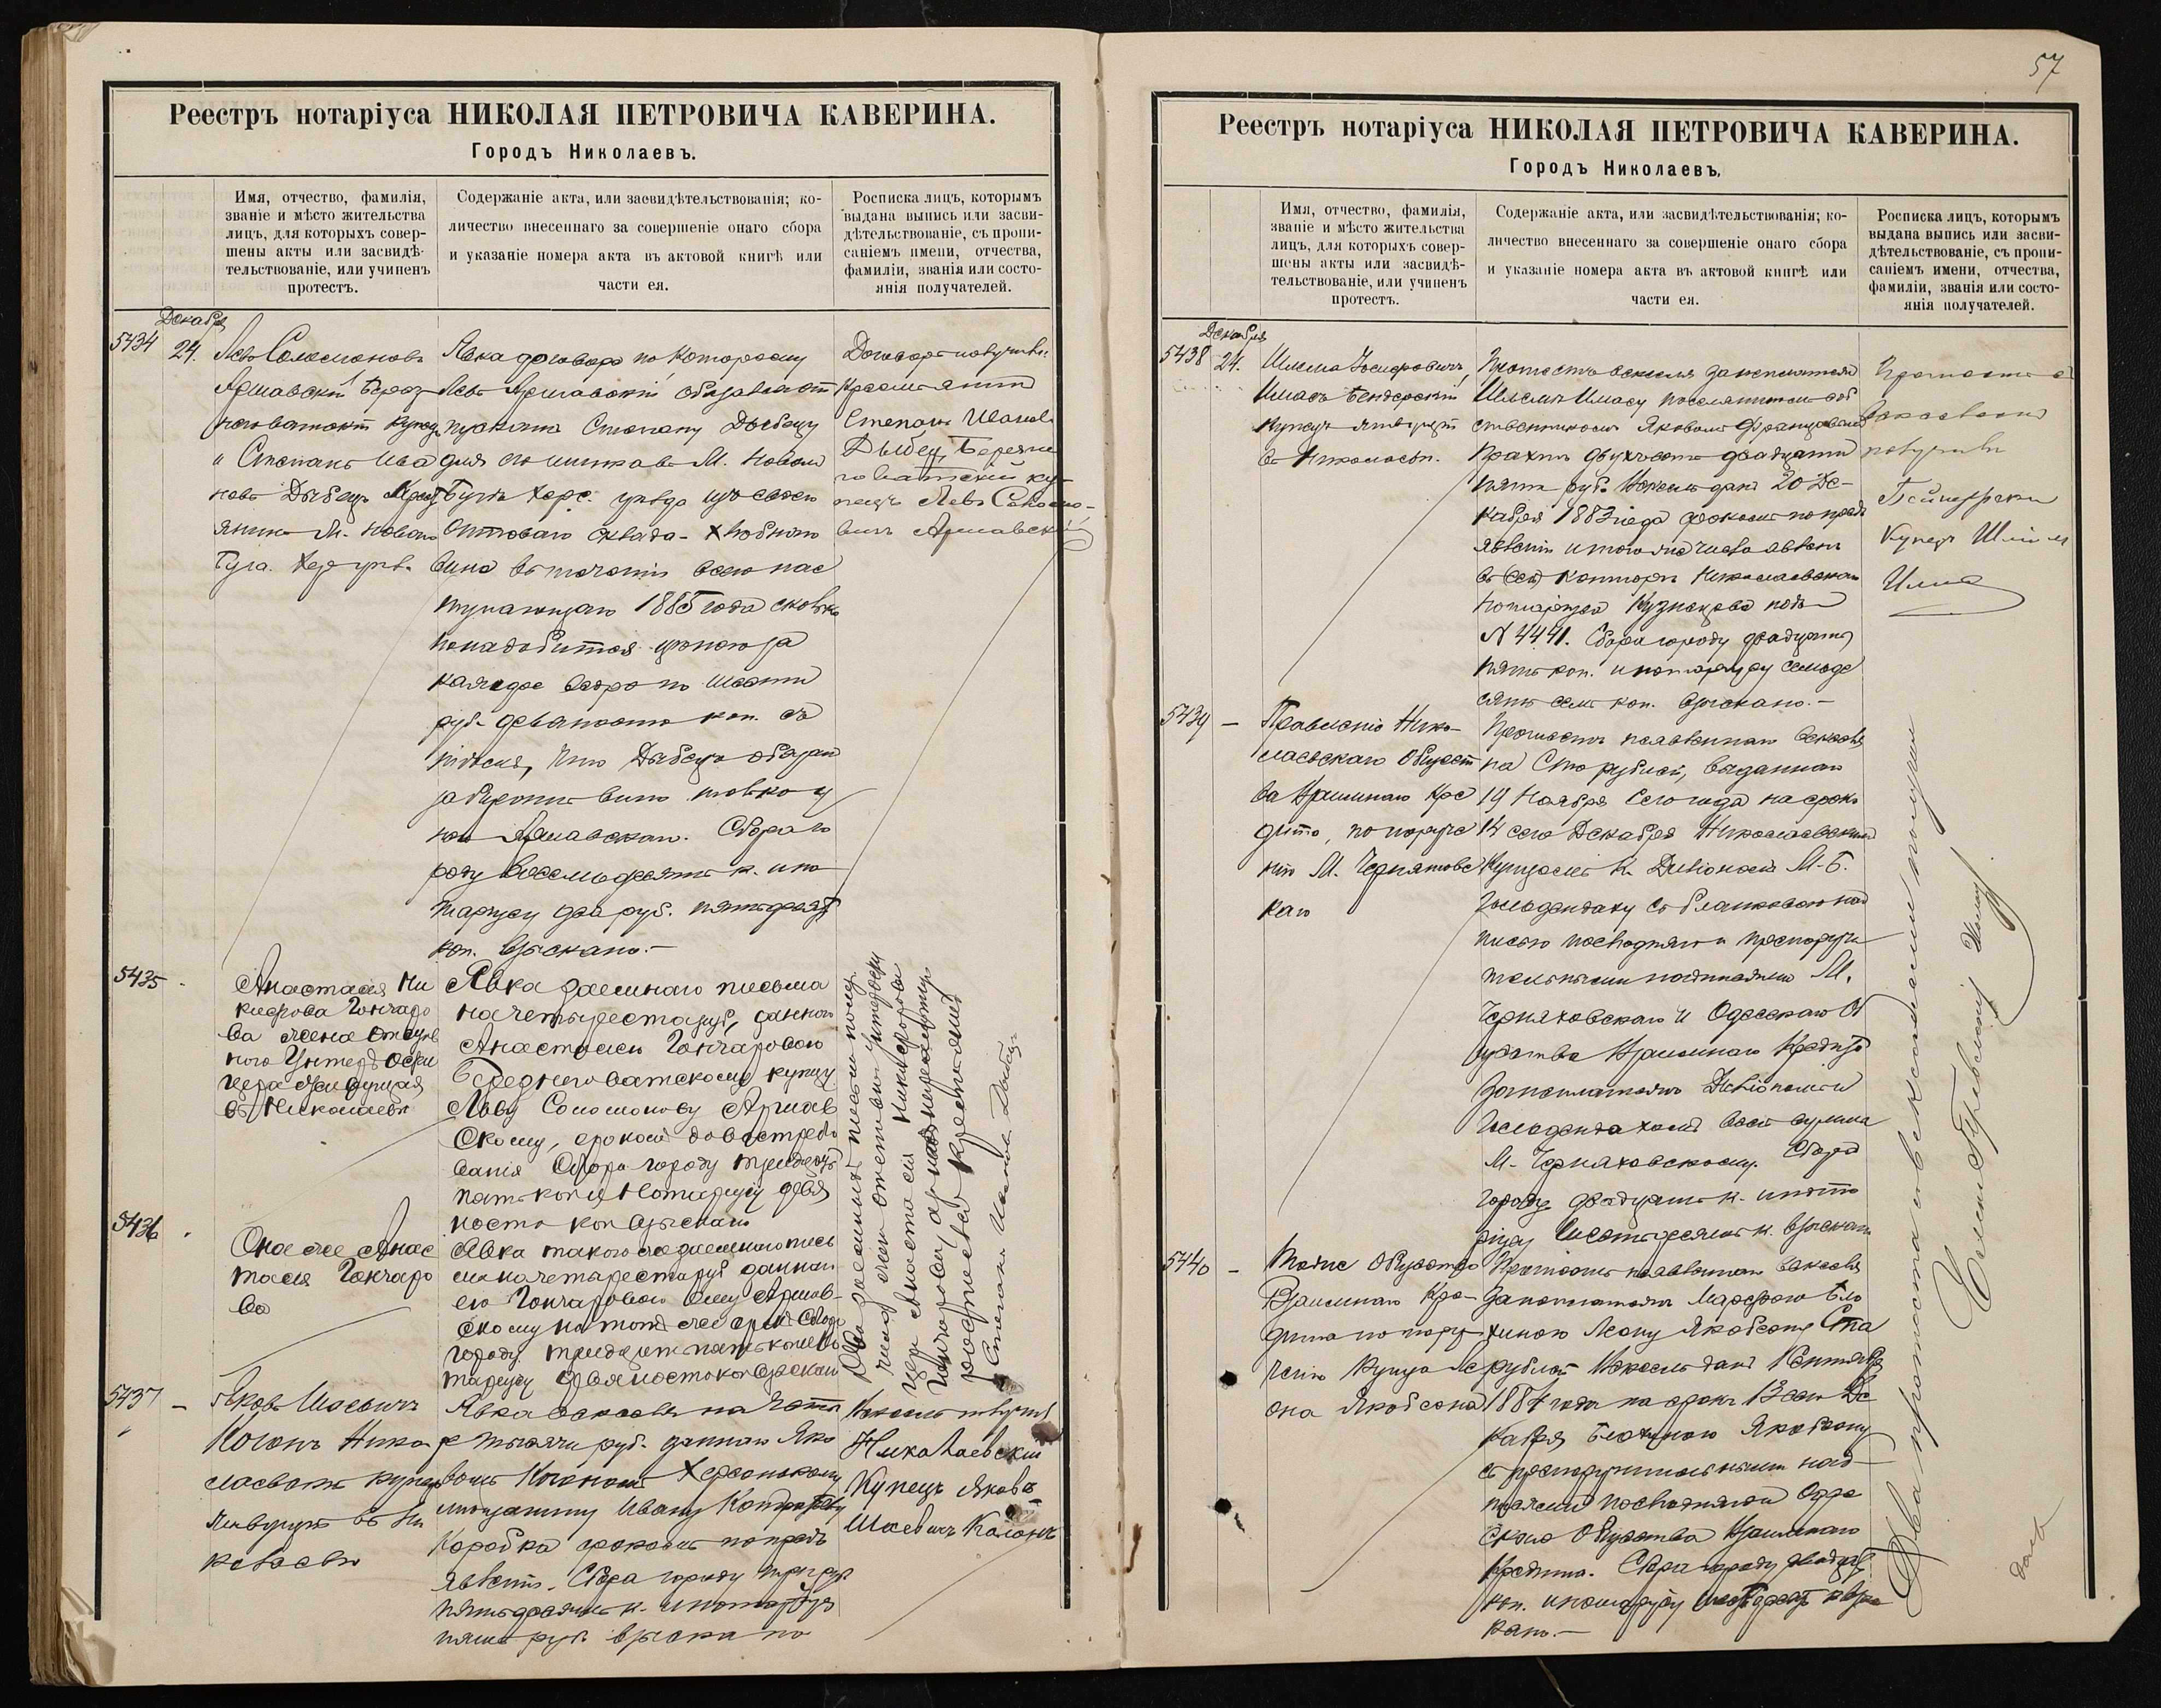 Реестръ нотаріуса НИКОЛАЯ ПЕТРОВИЧА КАВЕРИНА.
Городъ Николаевъ.
Имя, отчество, фамилія,
званіе и мѣсто жительства
лицъ, для которыхъ совер-
шены акты или засвидѣ-
тельствованіе, или учиненъ
протестъ.
Содержаніе акта, или засвидѣтельствованія; ко-
личество внесеннаго за совершеніе онаго сбора
и указаніе номера акта въ актовой книгѣ или
части ея.
Росписка лицъ, которымъ
выдана выпись или засви-
дѣтельствованіе, съ пропи-
саніемъ имени, отчества,
фамиліи, званія или состо-
янія получателей.
Декабря
5434 24.
Левъ Соломоновъ
Аршавскій Берез
неговатскій купец
и Степанъ Ива
новъ Дыбецъ Крест
янинъ М. Новаго
Буга. Хер. уѣзда
Явка договора по которому
Левъ Аршавскій обязывает
Степану Дыбецу
для его шинка въ М. Новомъ
Бугѣ Херс. уѣзда изъ своего
Оптоваго склада - хлѣбнаго
вина въ теченіи всего нас
тупающаго 1885 года сколько
понадобится цѣною за
каждое ведро по шести
руб. девяносто коп. съ
тѣмъ, что Дыбецъ обязан
забирать вино только у
него Аршавскаго. Сбора го
роду восемьдесятъ к. и но
таріусу два руб. пятьдесят
коп. взыскано.-
Договоръ получилъ
Крестьянинъ
Степанъ Иванов
Дыбец, Березне
говатскій ку-
пецъ Левъ Соломо-
вичъ Аршавскій
5435
Анастасія Ни
кифорова Гончаро
ва жена отстав
ного Унтеръ Офи
цера живущая
въ Николаевѣ
Явка заемнаго письма
на четыреста руб, даннаго
Анастасіею Гончаровою
Березнеговатскому купцу
Леву Соломонову Аршав
скому, срокомъ до востребо
ванія Сбора городу тридцать
пять коп и Нотаріусу девя
носто коп взыскано
5436
Она же Анас
тасія Гончаро
ва
Явка такого же заемнаго пись
ма на четыреста руб даннаго
ею Гончаровою ему Аршав-
скому на тотъ же срокъ Сбора
городу тридцать пять коп и Но
таріусу девяносто коп взыскано
Два заемныя письма полу
чила жена отставного Унтеръ Офи
цера Анастасія Никифорова
Гончарова, а по неграмотству
росписался Крестьянинъ
Степанъ Ивановъ Дыбецъ
5437 -
Яковъ Шаевичъ
Коганъ Нико
лаевскій купецъ
живущій въ Ни
колаевѣ
Явка векселя на четы
ре тысячи руб. даннаго Яко
вомъ Коганомъ Херсонскому
мѣщанину Ивану Кондратову
Коробка срокомъ по предъ
явленіи. Сбора городу три руб
пятьдесятъ к. и нотаріусу
пять руб. взыскано
Вексель получилъ
Николаевскій
Купецъ Яковъ
Шаевичъ Коганъ
57
Реестръ нотаріуса НИКОЛАЯ ПЕТРОВИЧА КАВЕРИНА.
Городъ Николаевъ.
Имя, отчество, фамилія,
званіе и мѣсто жительства
лицъ, для которыхъ совер-
шены акты или засвидѣ-
тельствованіе, или учиненъ
протестъ.
Содержаніе акта, или засвидѣтельствованія; ко-
личество внесеннаго за совершеніе онаго сбора
и указаніе номера акта въ актовой книгѣ или
части ея.
Росписка лицъ, которымъ
выдана выпись или засви-
дѣтельствованіе, съ пропи-
саніемъ имени, отчества,
фамиліи, званія или состо-
янія получателей.
Декабря
5438 24.
Шлема Іосифовичъ
Имасъ Бендерскій
Купецъ живущій
въ Николаевѣ.
Протестъ векселя за неплатежъ
Шлемѣ Имасу поселяниномъ соб
ственникомъ Яковомъ Францовымъ
двухсотъ двадцати
пяти руб. Вексель данъ 20 Де-
кабря 1883 года срокомъ по предъ
явленіи и того же числа явленъ
въ конторѣ Николаевскаго
нотаріуса Кузнецова подъ
N 4441. Сбора городу двадцать
пять коп. и нотаріусу семьде
сятъ семь коп. взыскано.-
Протестъ съ
векселемъ
получилъ
Бендерскій
Купецъ Шлема
Имасъ
5439 -
Правленіе Нико-
лаевскаго Общест
ва Взаимнаго Кре
дита, по поруче
нію М. Черняховс
каго
Протестъ неявленнаго векселя
на Сто рублей, выданнаго
14 Ноября сего года на срокъ
14 сего Декабря Николаевскимъ
Купцомъ М. Б.
съ бланковою над
писью послѣдняго и препоручи
тельными надписями М.
Черняховскаго и Одесскаго Об
щества Взаимнаго Кредита
за неплатежъ
всей суммы
М. Черняховскому. Сбора
городу двадцать к. и нота
ріусу шестьдесятъ к. взыскано
5440 -
Тоже Общество
Взаимнаго Кре-
дита по пору
ченію Купца Ле
она Якобсона
Протестъ неявленнаго векселя
за неплатежъ Марфою Бло
хиною Леону Якобсону Ста
рублей Вексель данъ 1 Сентября
1884 года на срокъ 13 сего Де
кабря Блохиною Якобсону
съ препоручительными над-
писями послѣдняго и Одес
скаго Общества Взаимнаго
Кредита. Сбора городу двадцать
коп. и нотаріусу шестьдесят к взыс
кано.-
Два протеста съ векселями получилъ